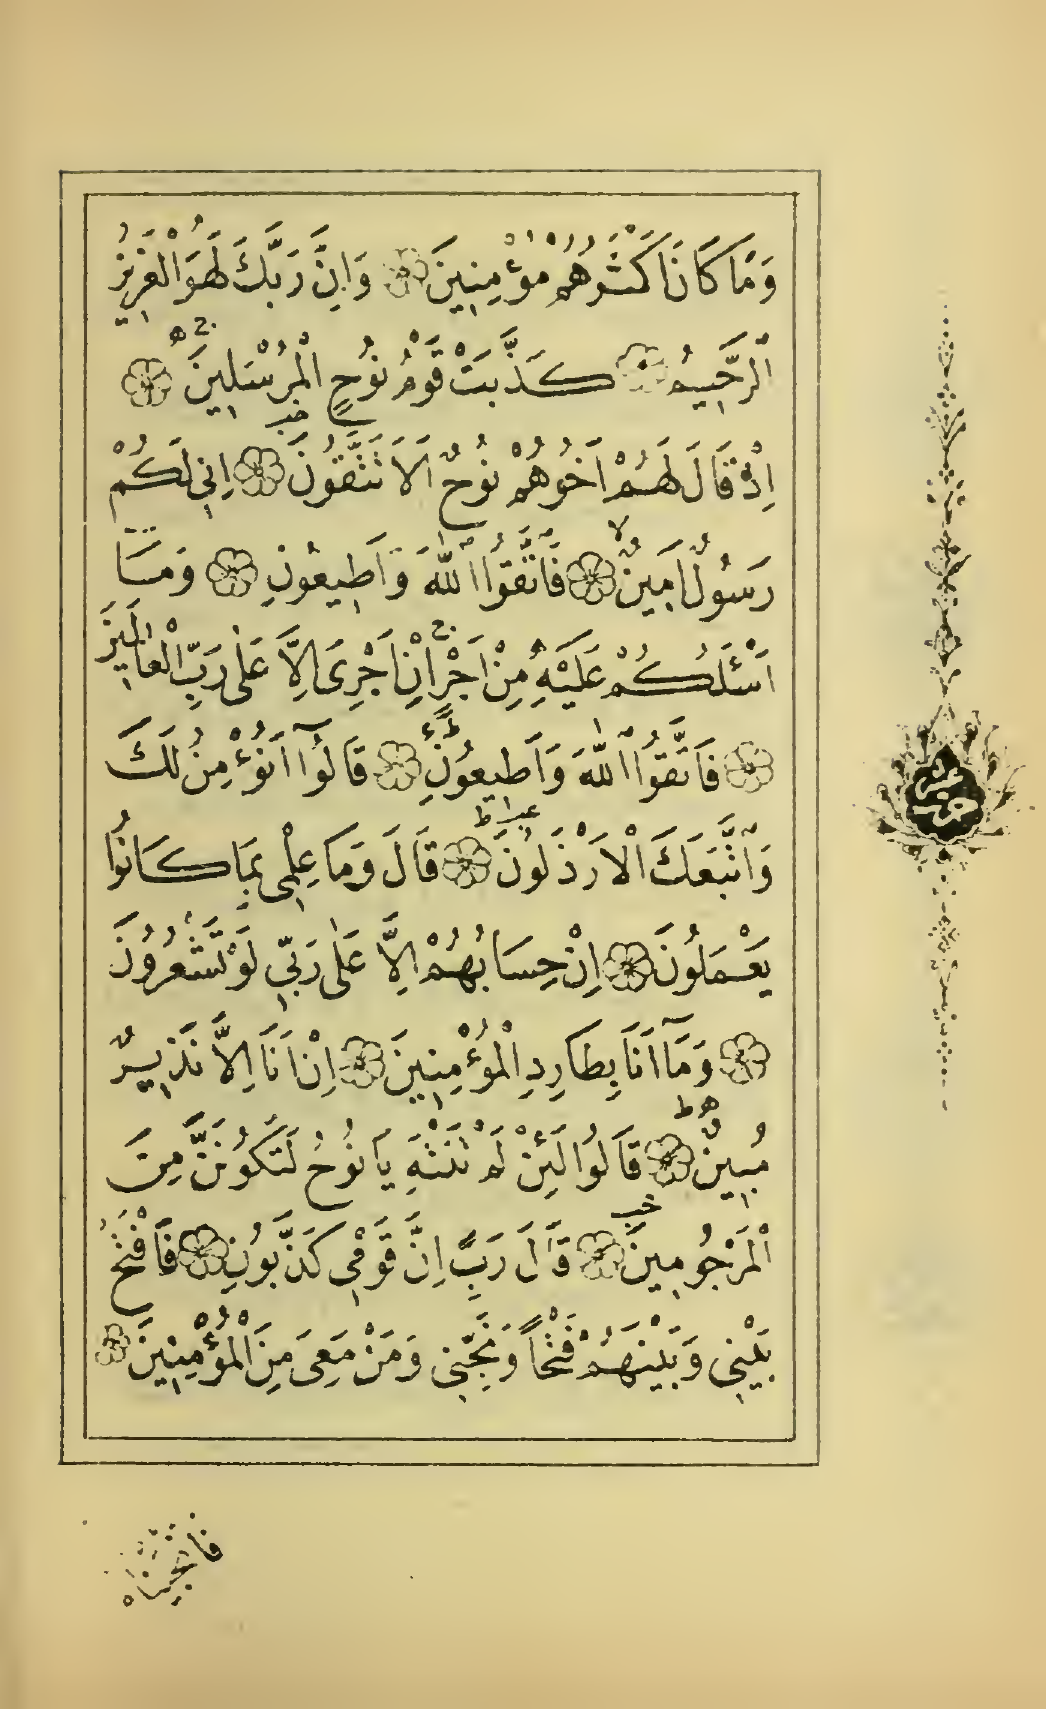 وَمَا كَانَ اَكْثَرُهُمْ مُؤْمِنِينَ وَاِنَّ رَبَّكَ لَهُوَ الْعَزِيزُ
الرَّحِيمُ كَذَّبَتْ قَوْمُ نُوحٍ الْمُرْسَلِينَ
اِذْ قَالَ لَهُمْ اَخُوهُمْ نُوحٌ اَلَا تَتَّقُونَ اِنِّي لَكُمْ
رَسُولٌ اَمِينٌ فَاتَّقُوا اللّٰهَ وَاَطِيعُونِ وَمَٓا
اَسْئَلُكُمْ عَلَيْهِ مِنْ اَجْرٍ اِنْ اَجْرِىَ اِلَّا عَلٰى رَبِّ الْعَالَمِينَ
فَاتَّقُوا اللّٰهَ وَاَطِيعُونِ قَالُٓوا اَنُؤْمِنُ لَكَ
وَاتَّبَعَكَ الْاَرْذَلُونَ قَالَ وَمَا عِلْمِى بِمَا كَانُوا
يَعْمَلُونَ اِنْ حِسَابُهُمْ اِلَّا عَلٰى رَبِّي لَوْ تَشْعُرُونَ
وَمَٓا اَنَا بِطَارِدِ الْمُؤْمِنِينَ اِنْ اَنَا اِلَّا نَذِيرٌ
مُبِينٌ قَالُوا لَئِنْ لَمْ تَنْتَهِ يَا نُوحُ لَتَكُونَنَّ مِنَ
الْمَرْجُومِينَ قَالَ رَبِّ اِنَّ قَوْمِي كَذَّبُونِ فَافْتَحْ
بَيْنِي وَبَيْنَهُمْ فَتْحًا وَنَجِّنِي وَمَنْ مَعِىَ مِنَ الْمُؤْمِنِينَ
فانجيناه